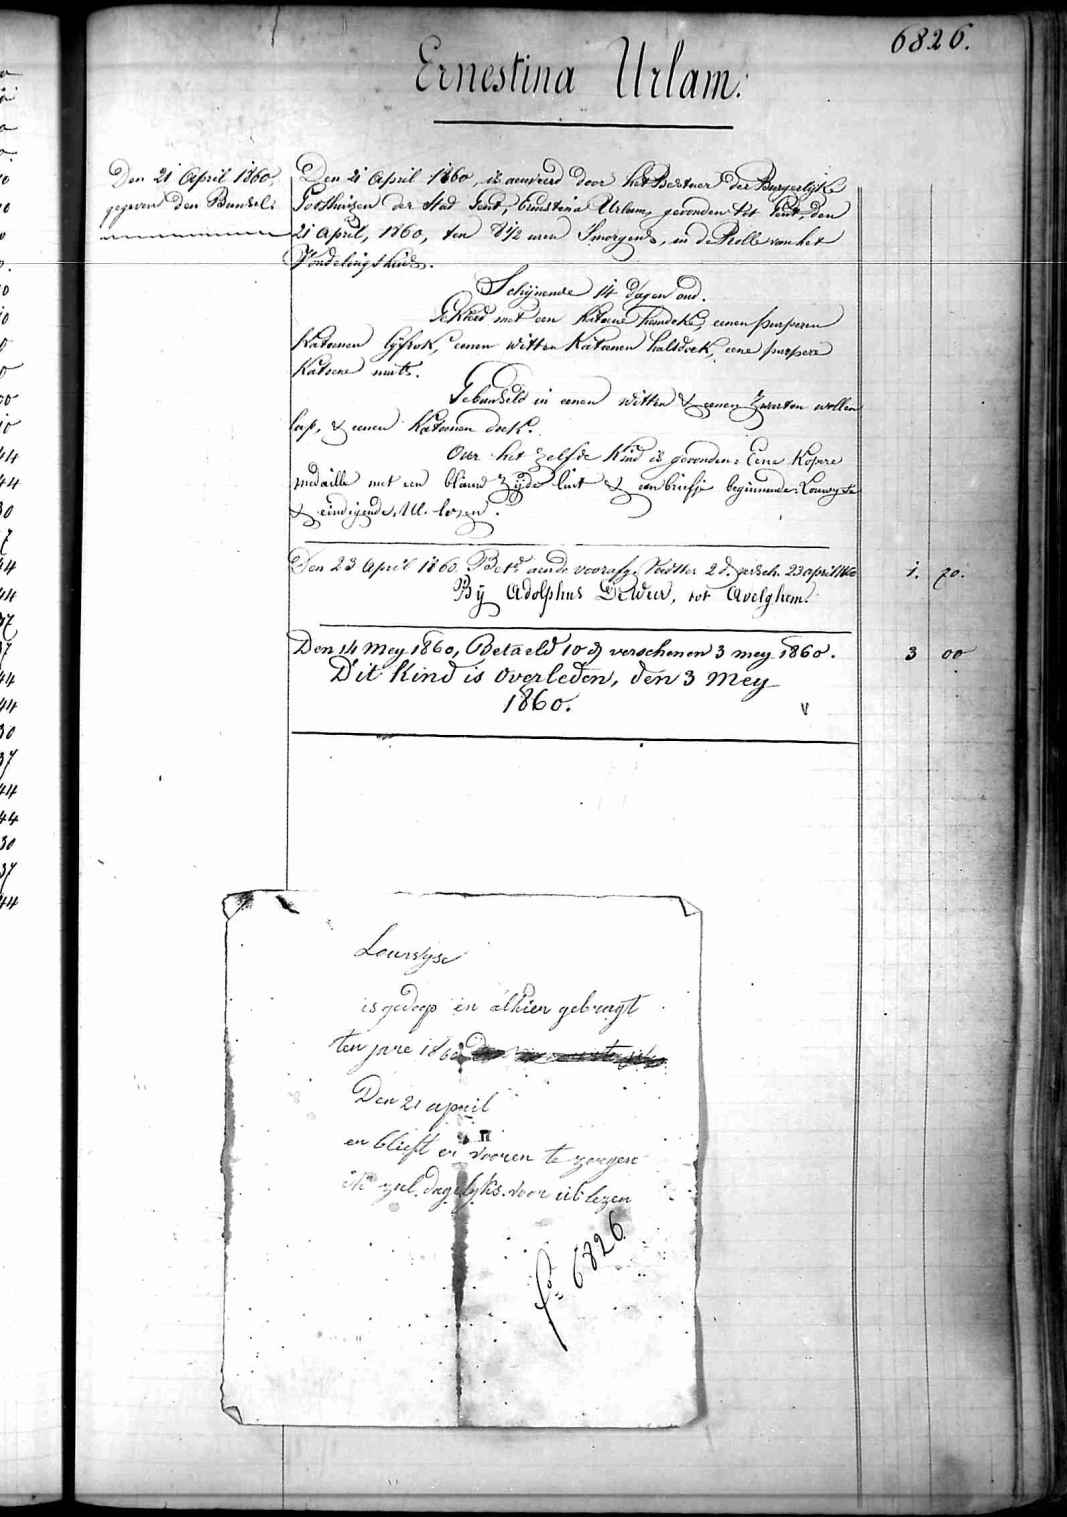 6826.
Ernestina Urlam.
Den 21 April 1860,
gegeven den Bunsel.
Den 21 April 1860, is aenveerd door het Bestuer der Burgerlyke
Godshuizen der Stad Gent, Ernestina Urlam, gevonden tot Gent den
21 April, 1860, ten 8 1/2 uren Smorgens, in de Rolle van het
Vondelingshuis.
Schynende 14 dagen oud.
Gekleed met een Katoene hemdeke, eenen purperen
Katoenen lyfrok, eenen witten Katoenen halsdoek, eene purpere
Katoene muts.
Gebunseld in eenen witten & eenen zwarten wollen
lap, & eenen Katoenen doek.
Over het zelfde Kind is gevonden: Eene Kopere
medaille met een blauw zyde lint & een briefje beginnende: Louwyse
& eindigende, ut. lezen.
Den 23 April 1860. Bet. aende voorafg. Voedster 2 d. versch. 23 april 1860
1. 20.
By Adolphus DeWier, tot Avelghem.
Den 14 Mey 1860, Betaeld 10 d versehenen 3 mey 1860.
3 00
Dit Kind is overleden, den 3 Mey
1860.
V
Louwyse
is gedoop en alhier gebragt
ten jare 1860
Den 21 april
en blieft er vooren te zorgen
ik zal dagelyks voor ul lezen
f° 6826